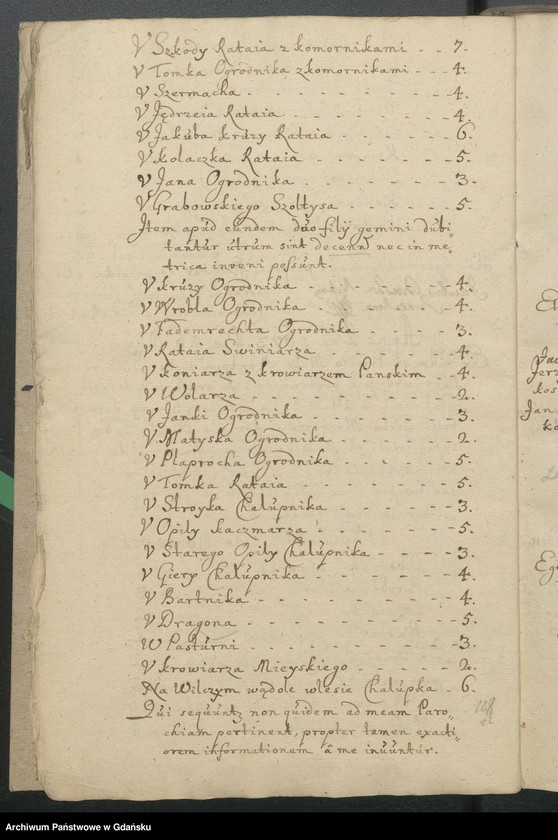 V Szkody Rataia z komornikami . . 7.
V Tomka Ogrodnika z komornikami . - - 4.
V Szermacha . - - - - - - - 4.
V Jędrzeia Rataia . - - - - - 4.
V Jakuba kruzy Rataia . - - - - 6.
V kolaczka Rataia . - - - - - 5.
V Jana Ogrodnika . - - - - - 3.
V Grabowskiego Szoltysa - - - - 5.
Jtem apud eundem duo filij gemini dubi-
tantur utrum sint decenn nec in me-
trica inveni possunt.
V kruzy Ogrodnika - - - - - 4.
V Wrobla Ogrodnika . - - - - 4.
V Fademrechta Ogrodnika - - - - 3.
V Rataia Swiniarza . - - - - 4.
V koniarza z krowiarzem Panskim . - 4.
V Wolarza . - - - - - - - 2.
V Janki Ogrodnika . - - - - 3.
V Matyska Ogrodnika - - - - 2.
V Plaprocha Ogrodnika . - - - 5.
V Tomka Rataia - - - - - 5.
V Stroyka Chalupnika . - - - - 3.
V Opily kaczmarza . - - - - 5.
V Starego Opily Chalupnika - - - - 3.
V Giery Chalupnika - - - - - 4.
V Bartnika - - - - - - - 4.
V Dragona . - - - - - - 5.
W Pasturni . - - - - - - 3.
V krowiarza Mieyskiego - - - - 2.
Na Wilczym wądole wlesie Chalupka . 6.
Qui sequuntz non quidem ad meam Paro-
chiam pertinent, propter tamen exacti-
orem informationem â me inuuntur.
128
Archiwum Państwowe w Gdańsku